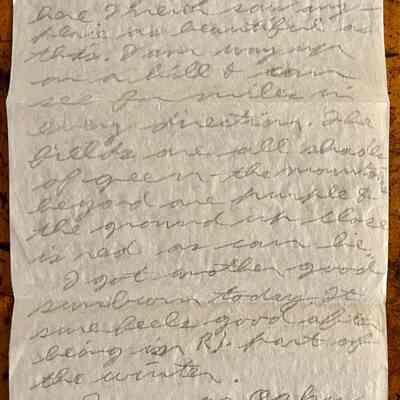 here. I never saw any
place as beautiful as
this. I am way up
on a hill & can
see for miles in
every direction. The
fields are all shades
of green - the mountains
beyond are purple &
the ground up close
is red as can be.
I got another good
sunburn today. It
sure feels good after
being in R.I. part of
the winter.
Oahu